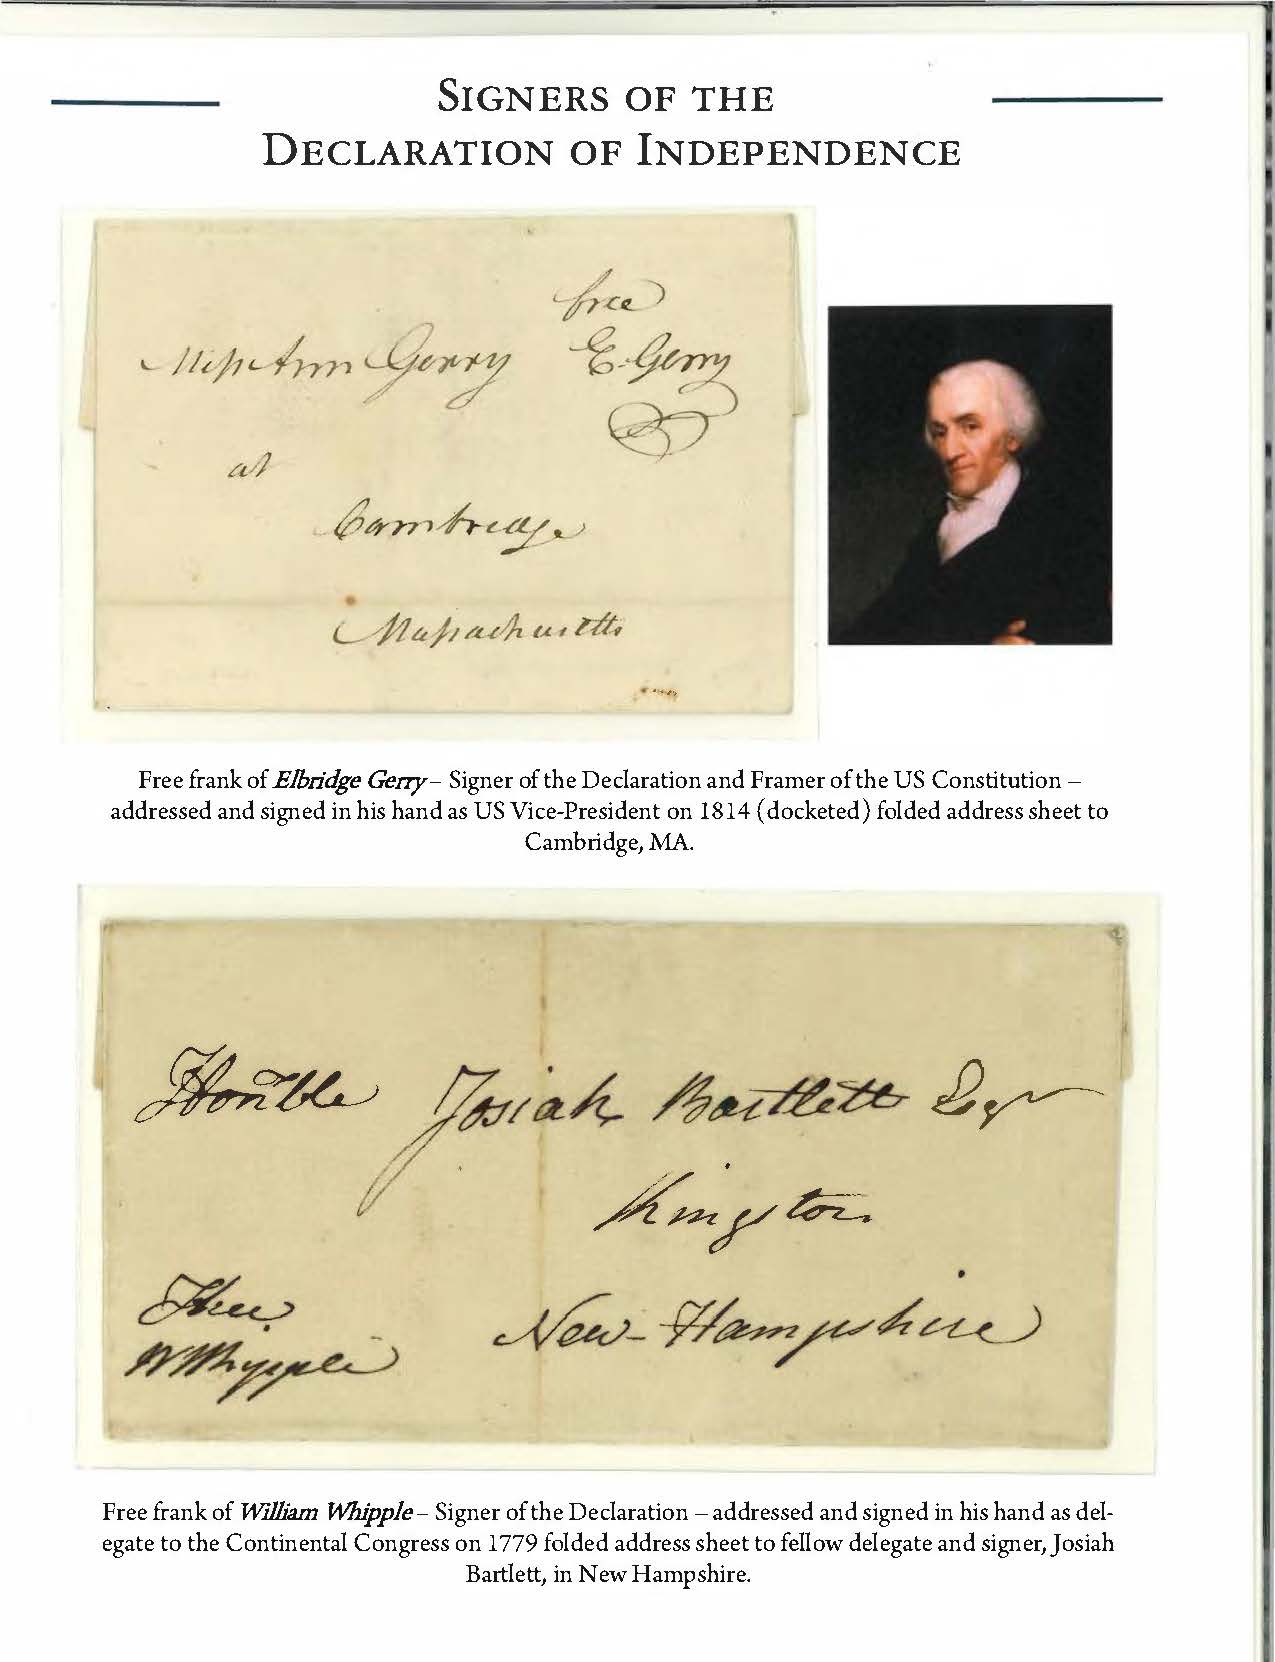 SIGNERS OF THE
DECLARATION OF INDEPENDENCE
free
Miss Ann Gerry E. Gerry
at
Cambridge
Massachusetts
Free frank of Elbridge Gerry – Signer of the Declaration and Framer of the US Constitution –
addressed and signed in his hand as US Vice-President on 1814 (docketed) folded address sheet to
Cambridge, MA.
Honble Josiah Bartlett Esqr
Kingston
Free New-Hampshire
Wm Whipple
Free frank of William Whipple – Signer of the Declaration – addressed and signed in his hand as del-
egate to the Continental Congress on 1779 folded address sheet to fellow delegate and signer, Josiah
Bartlett, in New Hampshire.